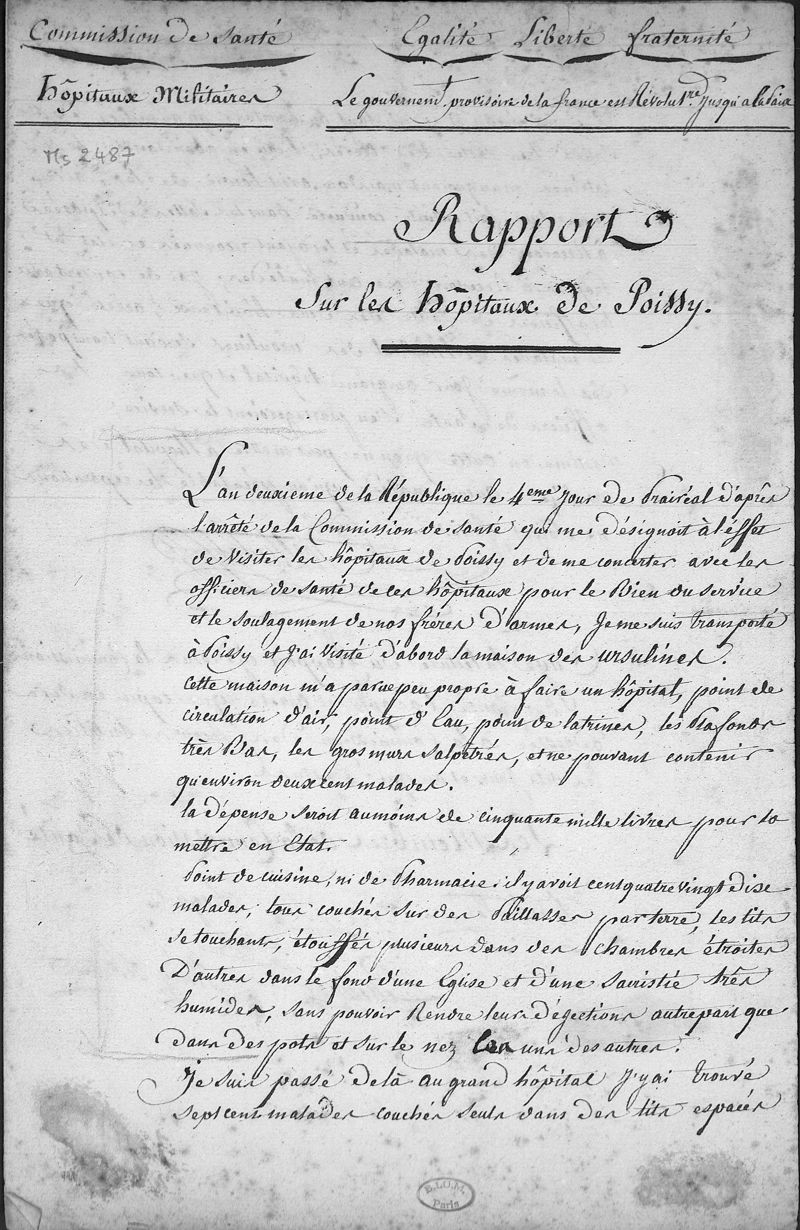 Commission de Santé
Egalité Liberté fraternité
hôpitaux Militaires
Le gouvernemt. provisoire de la france est Révolutre. Jusqu'a la Paix
Ms 2487
Rapport
Sur les hôpitaux de Poissy.
L'an deuxieme de la République le 4eme Jour de Prairéal d'après
l'arrêté de la Commission de santé qui me désignoit à l'éffet
de Visiter les hôpitaux de Poissy et de me concerter avec les
officiers de santé de ces hôpitaux pour le Bien du service
et le soulagement de nos fréres d'armes, Je me suis transporté
à Poissy et J'ai Visité d'abord la maison des ursulines.
Cette maison m'a parue peu propre à faire un hôpital, point de
circulation d'air, point d'Eau, point de latrines, les Plafonds
très Bas, les gros murs salpêtrés, et ne pouvant contenir
qu'environ deux cent malades.
la dépense seroit au moins de cinquante mille livres pour la
mettre en Etat.
Point de cuisine, ni de Pharmacie : il y avoit cent quatre vingt dise
malades, tous couchés sur des Paillasses par terre, les lits
se touchants, étouffés plusieurs dans des chambres étroites
D'autres dans le fond d'une Eglise et d'une sacristie très
humides, sans pouvoir Rendre leurs dégections autre part que
dans des pots et sur le nez les uns des autres.
Je suis passé de là au grand hôpital J'y ai trouvé
sept cent malades couchés seuls dans des lits espacés
B.I.U.M.
Paris